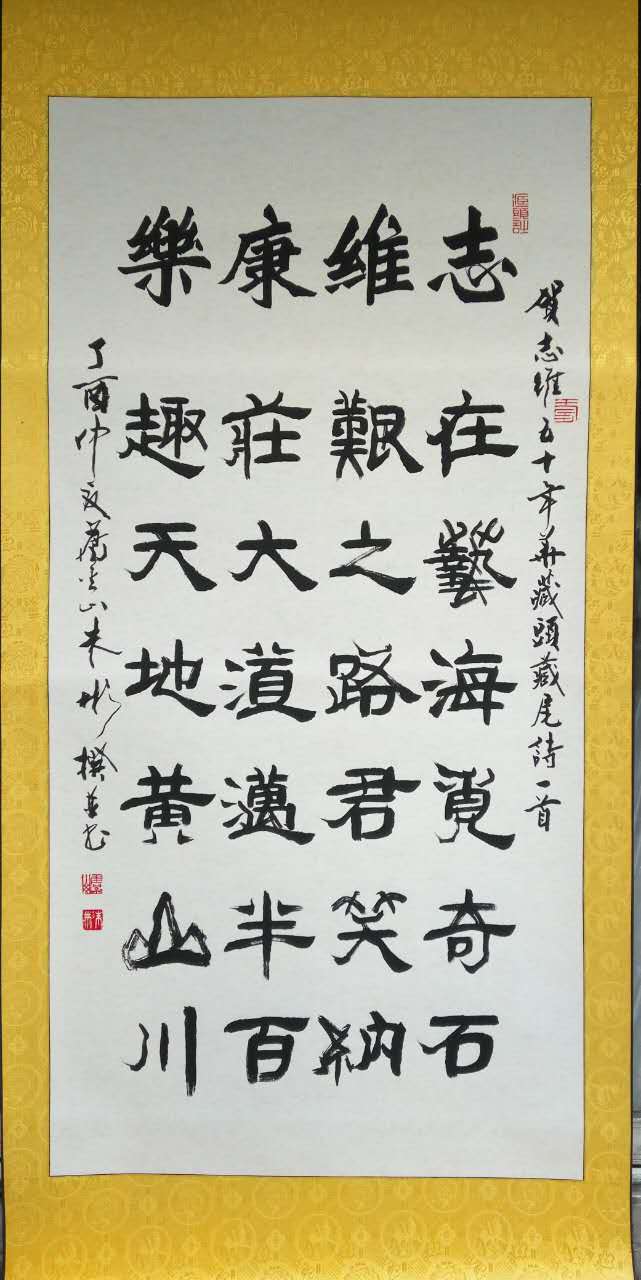 賀志維五十年華藏頭藏尾詩一首
志在藝海覓奇石
維艱之路君笑納
康莊大道邁半百
樂趣天地黃山川
丁酉仲夏山撰並書